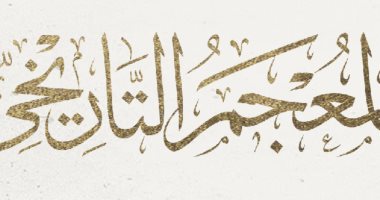 لمُعْجَمُ التَّارِيخِيّ